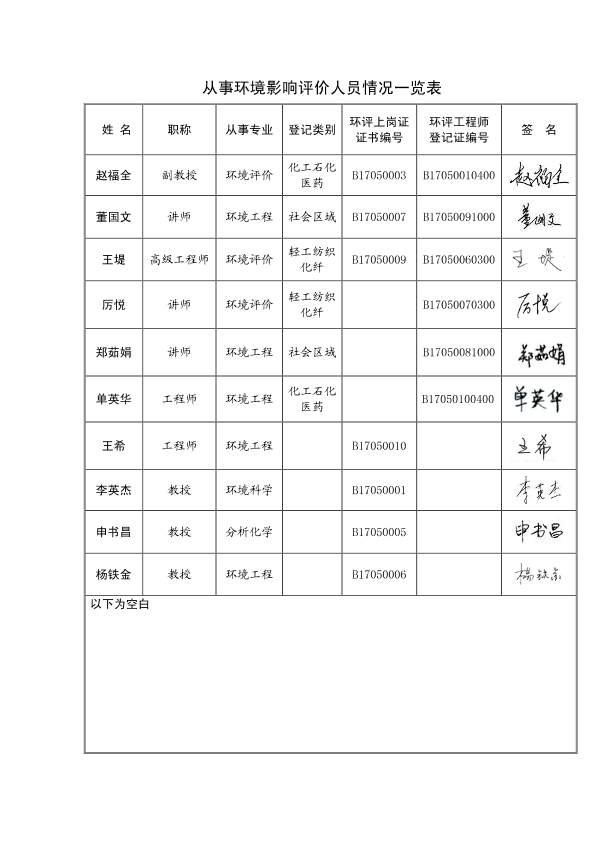 从事环境影响评价人员情况一览表
姓 名 职称 从事专业 登记类别 环评上岗证 证书编号 环评工程师 登记证编号 签 名
赵福全 副教授 环境评价 化工石化 医药 B17050003 B17050010400 赵福全
董国文 讲师 环境工程 社会区域 B17050007 B17050091000 董国文
王堤 高级工程师 环境评价 轻工纺织 化纤 B17050009 B17050060300 王堤
厉悦 讲师 环境评价 轻工纺织 化纤 B17050070300 厉悦
郑茹娟 讲师 环境工程 社会区域 B17050081000 郑茹娟
单英华 工程师 环境工程 化工石化 医药 B17050100400 单英华
王希 工程师 环境工程 B17050010 王希
李英杰 教授 环境科学 B17050001 李英杰
申书昌 教授 分析化学 B17050005 申书昌
杨铁金 教授 环境工程 B17050006 杨铁金
以下为空白